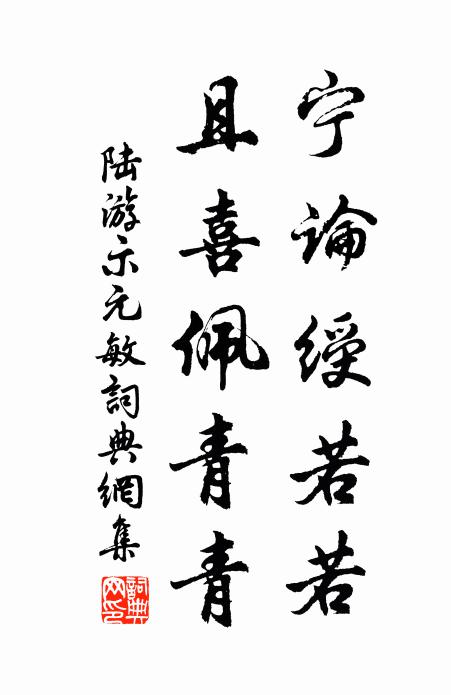 宁論綬若若
且喜佩青青
陆游示元敏詞典網集
詞典网印